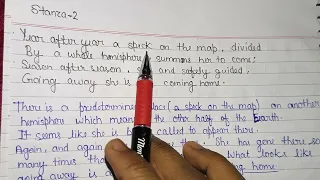 Stanza-2
Year after year a speck on the map, divided
By a whole hemisphere, summons her to come;
Season after season, and safely guided,
Going away she is coming home.
There is a predetermined place (a speck on the map) on another
hemisphere which means the other half of the Earth.
It seems like she is called to appear there.
Again, and again She has gone there so
many times that What looks like
going away is a coming home